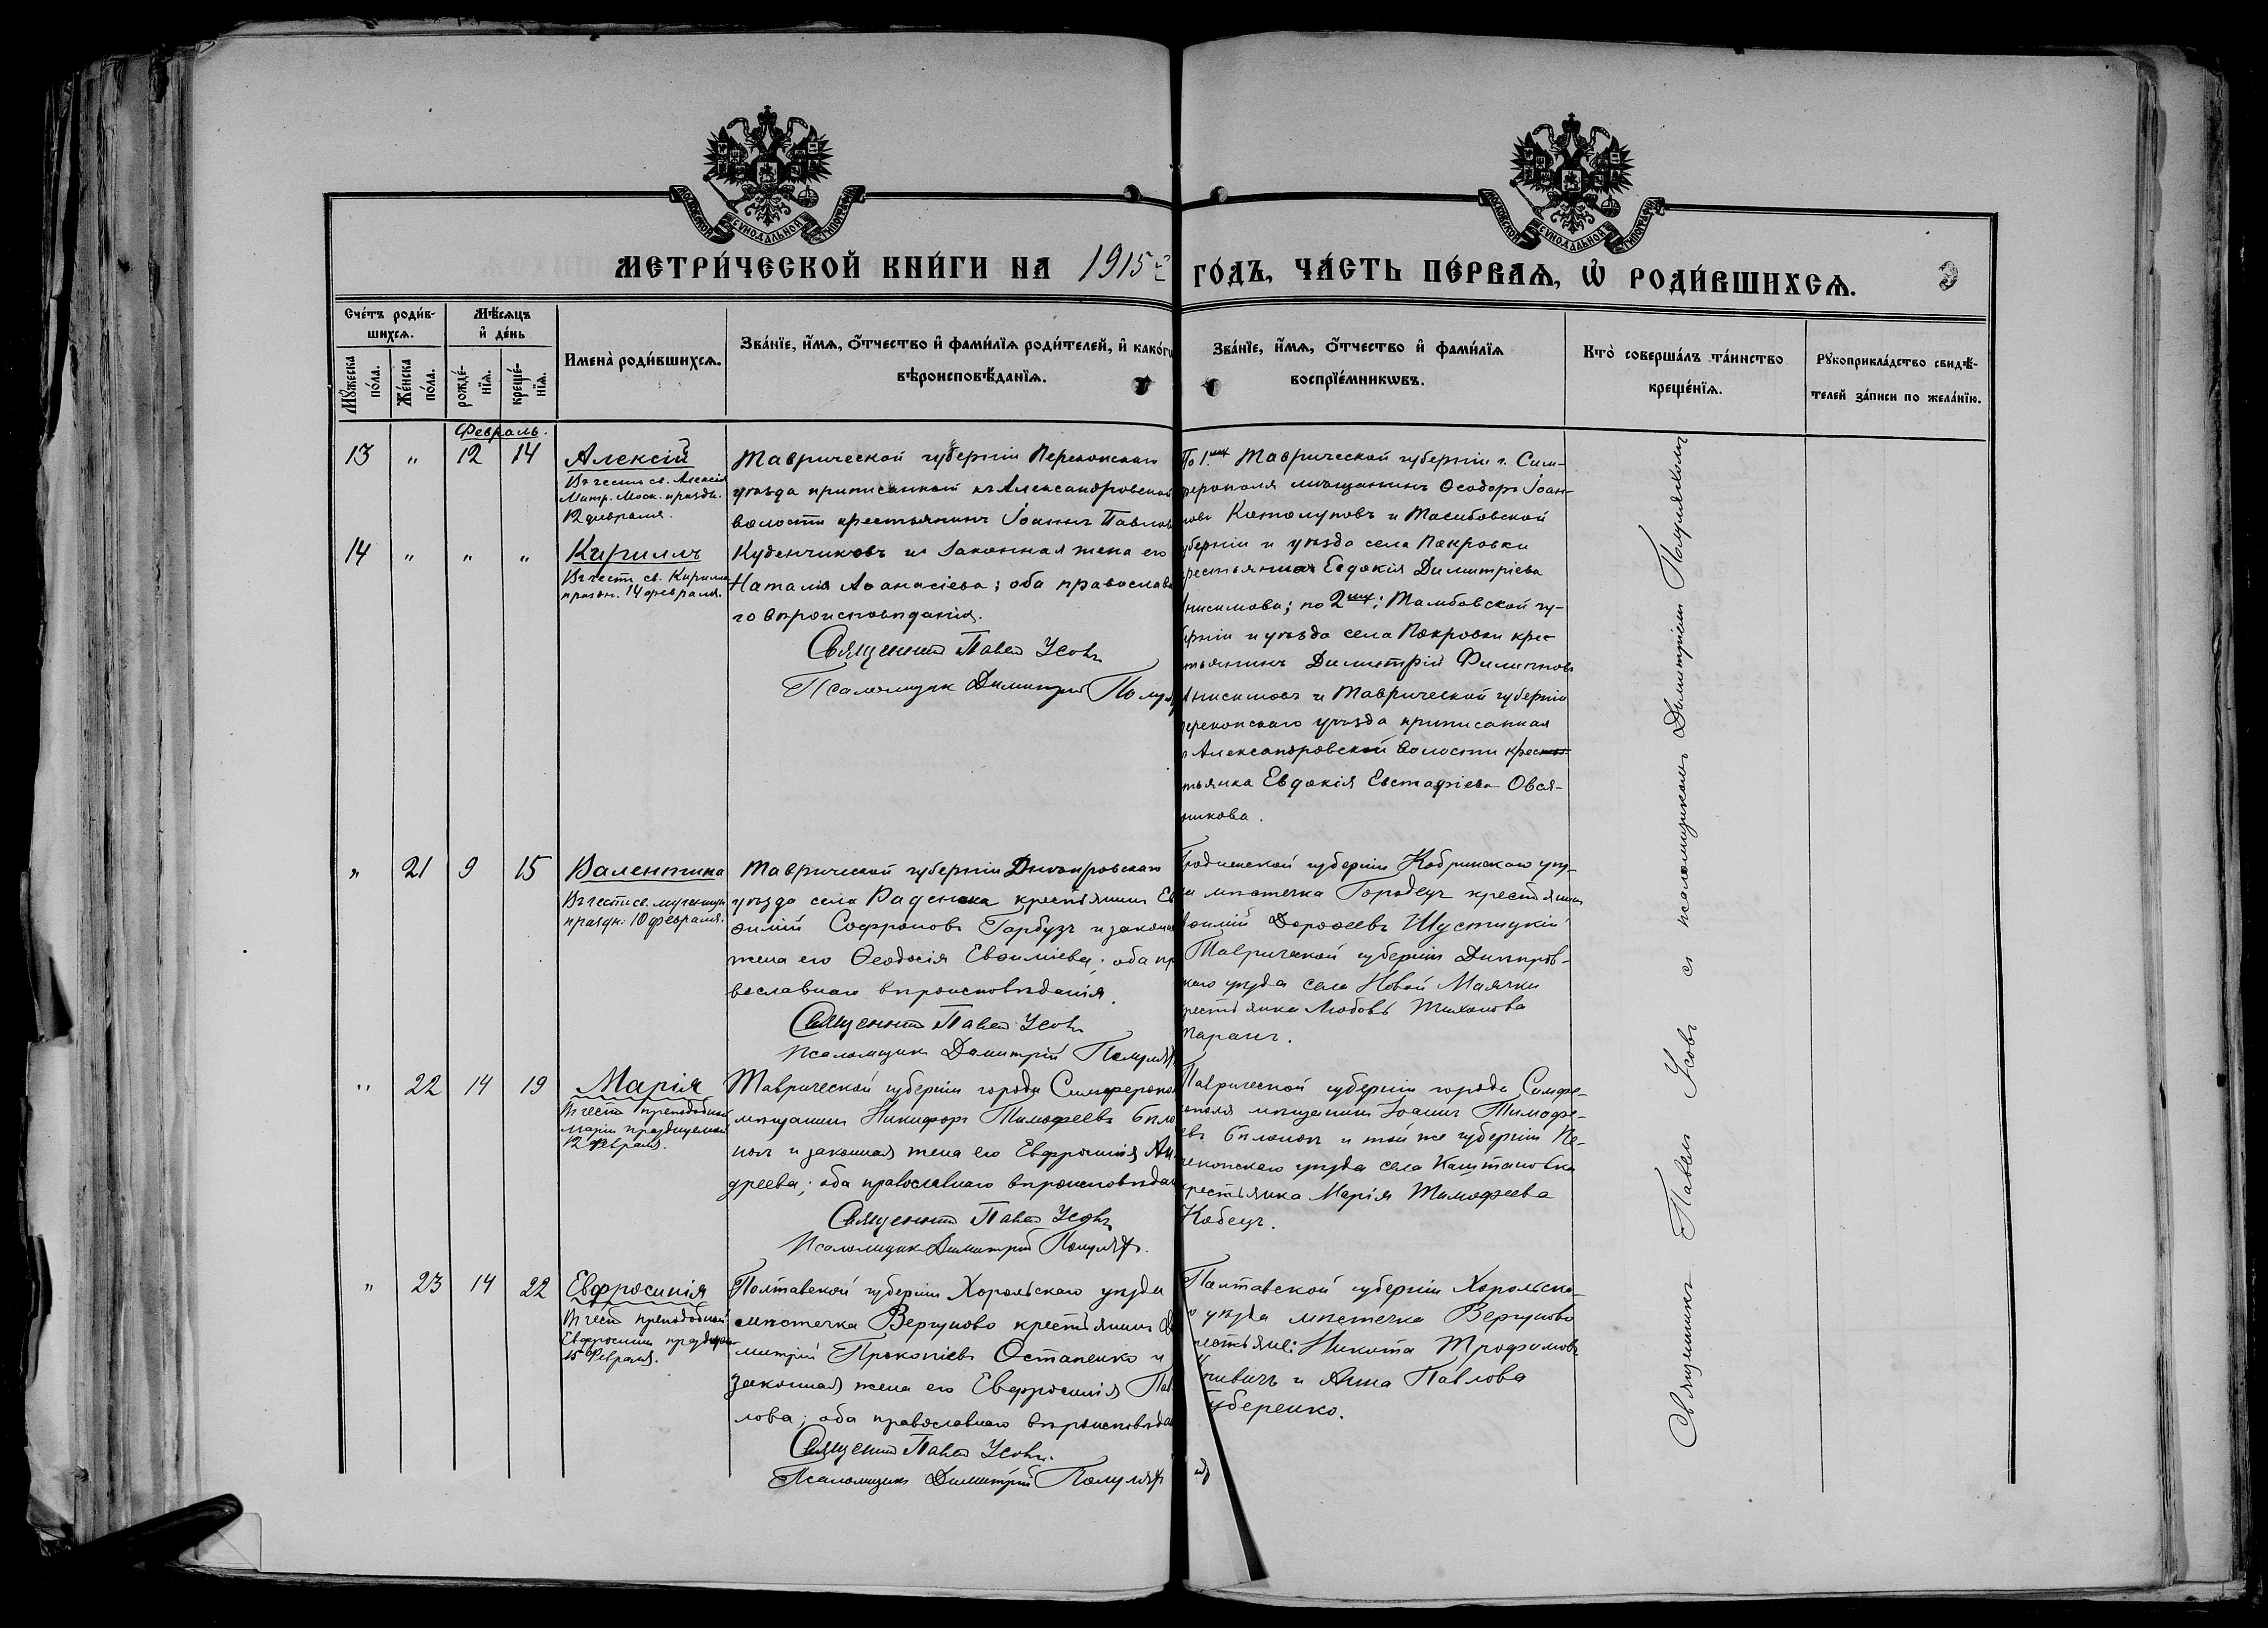 МОСКОВСКОЙ СѴНОДАЛЬНОЙ ТИПОГРАФІИ
МОСКОВСКОЙ СѴНОДАЛЬНОЙ ТИПОГРАФІИ
МЕТРИ́ЧЕСКОЙ КНИ́ГИ НА 1915 й
ГО́ДЪ, ЧА́СТЬ ПЕ́РВАѦ, Ѡ҆ РОДИ́ВШИХСѦ.
Сче́тъ роди́в-
шихсѧ.
Мѣ́сѧцъ
и҆ де́нь
Мꙋ́жеска
по́ла.
Же́нска
по́ла.
рожде́-
нїѧ.
креще́-
нїѧ.
Имена̀ роди́вшихсѧ.
Зва́нїе, и҆́мѧ, ѻ҆́тчество и҆ фами́лїѧ роди́телей, и҆ како́гѡ
вѣроисповѣ́данїѧ.
Зва́нїе, и҆́мѧ, ѻ҆́тчество и҆ фами́лїѧ
воспрїе́мникѡвъ.
Кто̀ соверша́лъ та́инство
креще́нїѧ.
Рꙋкоприкла́дство свидѣ́-
телей за́писи по жела́нїю.
Февраль.
13 " 12 14 Алексій
Въ честь св. Алексія
Митр. Моск. праздн.
12 февраля.
Таврической губерніи Перекопскаго
уѣзда приписанный къ Александровской
волости крестьянинъ Іоаннъ Павловъ
14 " " " Кириллъ
Въ честь св. Кирилла
праздн. 14 февраля.
Куденчиковъ и законная жена его
Наталія Аѳанасіева; оба православна
го вѣроисповѣданія.
Священникъ Павелъ Усовъ
Псаломщик Димитрій
По 1му Таврической губерніи г. Сим-
ферополя мѣщанинъ Ѳеодоръ Іоан-
новъ и Тамбовской
губерніи и уѣзда села Покровки
крестьянка Евдокія Димитріева
Анисимова; по 2му: Тамбовской гу-
берніи и уѣзда села Покровки крес-
тьянинъ Димитрій Филипповъ
Анисимовъ и Таврической губерніи
Перекопскаго уѣзда приписанная
Александровской волости крес
тьянка Евдокія Евстафіева Овся-
никова.
" 21 9 15 Валентина
Въ честь св. мученицы
праздн. 10 февраля.
Таврической губерніи Днѣпровскаго
уѣзда села Раденска крестьянинъ Ев
ѳимій Софроновъ Гарбузъ и законная
жена его Ѳеодосія Евѳиміева; оба пра
вославнаго вѣроисповѣданія.
Священникъ Павелъ Усовъ
Псаломщикъ Димитрій
Гродненской губерніи Кобринскаго уѣз-
да мѣстечка Городецъ крестьянинъ
Евѳимій Дороѳеевъ Шустицкій
Таврической губерніи Днѣпров-
скаго уѣзда села Новой Маячки
крестьянка Любовь Тихонова
Таранъ.
" 22 14 19 Марія
Въ честь преподобной
Маріи празднуемой
12 февраля.
Таврической губерніи города Симферополя
мѣщанинъ Никифоръ Тимофеевъ Бѣло
нож и законная жена его Евфросинія Ан
дреева; оба православнаго вѣроисповѣданія
Священникъ Павелъ Усовъ
Псаломщикъ Димитрій
Таврической губерніи города Симфе-
рополя мѣщанинъ Іоаннъ Тимофе-
евъ и той же губерніи Пе-
рекопскаго уѣзда села Каштановка
крестьянка Марія Тимофеева
Кобецъ.
" 23 14 22 Евфросинія
Въ честь преподобной
Евфросиніи празднуем
15 февраля.
Полтавской губерніи Хорольскаго уѣзда
мѣстечка Вергуново крестьянинъ Ди
митрій Прокопіевъ Остапенко и
законная жена его Евфросинія Пав
лова; оба православнаго вѣроисповѣда
Священникъ Павелъ Усовъ
Псаломщикъ Димитрій
Полтавской губерніи Хорольска-
го уѣзда мѣстечка Вергуново
крестьяне: Никита Трофимовъ
и Анна Павлова
Губеренко.
Священникъ Павелъ Усовъ съ псаломщикомъ Димитріемъ